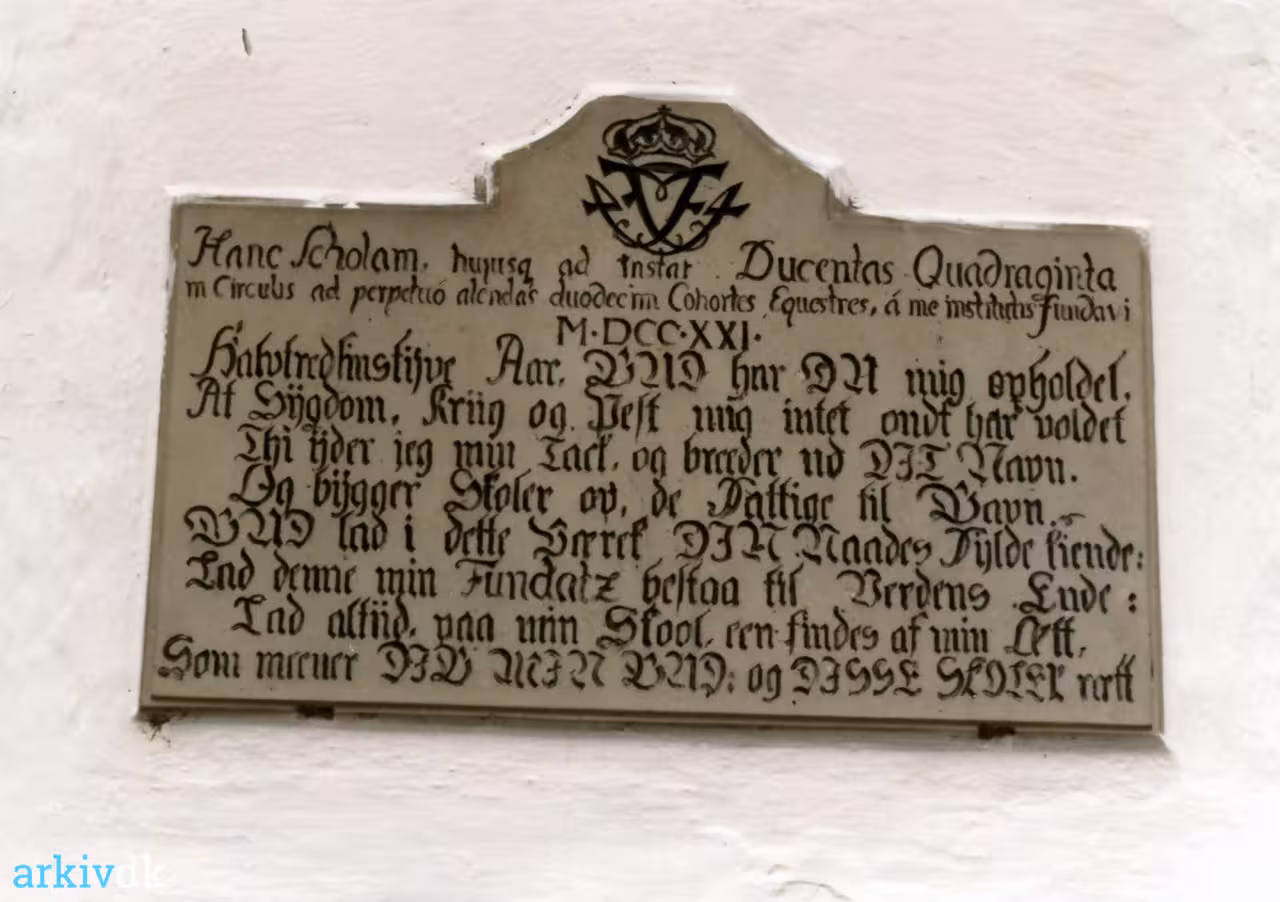 Hanc Scholam, hujusq ad instar Ducentas Quadraginta
in Circulis ad perpetuò alendas duodecim Cohortes Equestres, á me institutis fundavi
M·DCC·XXI·
Halvtredsinstijve Aar, GUD har DU mig opholdet,
At Sÿgdom, Kriig og Pest mig intet ondt har voldet
Thi yder jeg min Tack, og breeder ud DIT Navn.
Og bÿgger Skoler op, de Fattige til Gavn.
GUD lad i dette Værck DIN Naades Fÿlde kiende:
Lad denne min Fundatz bestaa til Verdens Ende:
Lad altiid, paa min Skool, een findes af min Ætt,
Som meener DIG MIN GUD; og DISSE SKOLER rætt
arkivdk